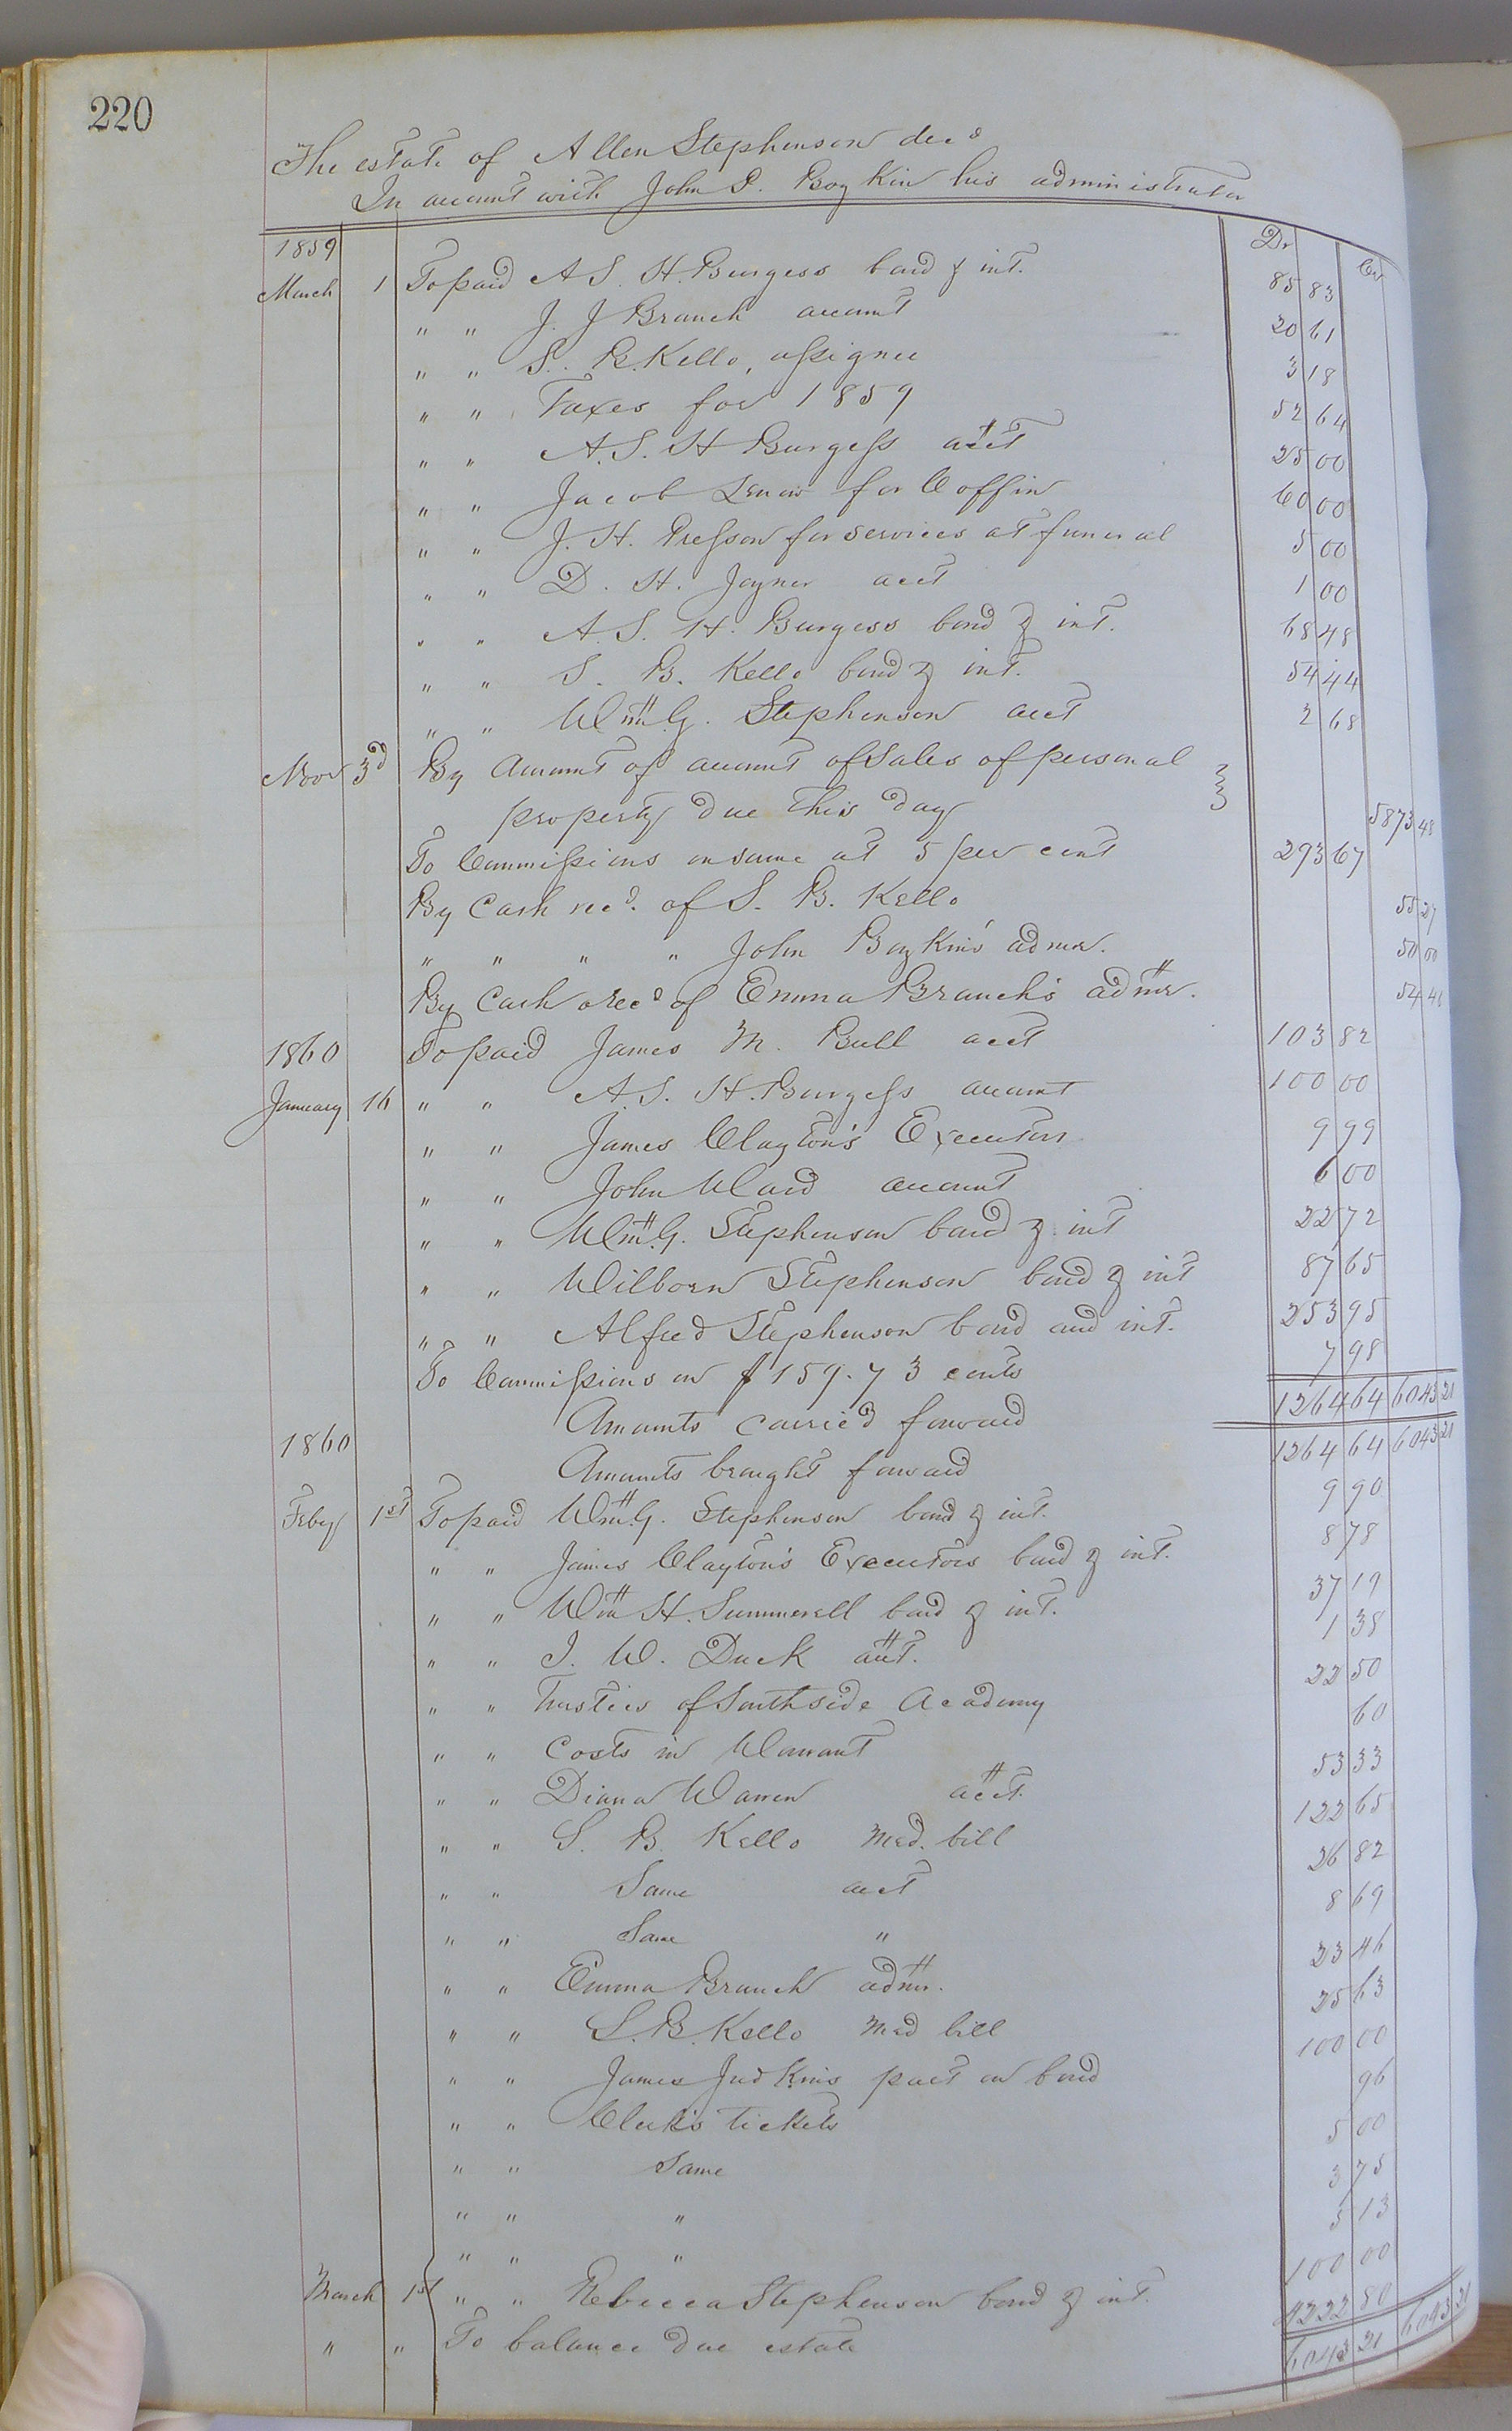 220
The estate of Allen Stephenson decd
In account with John D. Boykin his administrator
Dr Cr
1859
March 1 To paid A S. H. Burgess bond & int. 85 83
" " J. J Branch account 20 61
" " S. B. Kello, assignee 3 18
" " Taxes for 1859 52 64
" " A. S. H Burgess acct 25 00
" " Jacob for Coffin 60 00
" " J. H. Presson for services at funeral 5 00
" " D. H. Joyner acct 1 00
" " A. S. H. Burgess bond & int. 68 48
" " S. B. Kello bond & int. 54 44
" " Wm. G. Stephenson acct 2 68
Nov 3d By Amount of account of Sales of personal
property due this day 5873 48
To Commissions on same at 5 per cent 293 67
By Cash recd. of S. B. Kello 55 27
" " " " John Boykin's admr. 50 00
By Cash Recd of Emma Branch's admr. 54 46
1860 To paid James M. Bull acct 103 82
January 16 " " A. S. H. Burgess account 100 00
" " James Clayton's Executors 9 99
" " John Ward account 6 00
" " Wm. G. Stephenson bond & int 22 72
" " Wilborn Stephenson bond & int 87 65
" " Alfred Stephenson bond and int. 253 95
To Commissions on $159.73 cents 7 98
Amounts carried forward 1264 64 6043 21
1860 Amounts brought forward 1264 64 6043 21
Feby 1st To paid Wm. G. Stephenson bond & int. 9 90
" " James Clayton's Executors bond & int. 8 78
" " Wm H. Summerell bond & int. 37 19
" " J. W. Duck acct. 1 38
" " Trustees of Southside Academy 22 50
" " Costs in Warrant 60
" " Diana Warren acct. 53 33
" " S. B. Kello Med. bill 122 65
" " Same acct 26 82
" " Same " 8 69
" " Emma Branch admr. 23 46
" " S. B. Kello Med bill 25 63
" " James Judkins part on bond 100 00
" " Clerk's tickets 96
" " Same 5 00
" " " 3 75
" " " 5 13
March 1st " " Rebecca Stephenson bond & int. 100 00
" " To balance due estate 4222 80
6043 21 6043 21